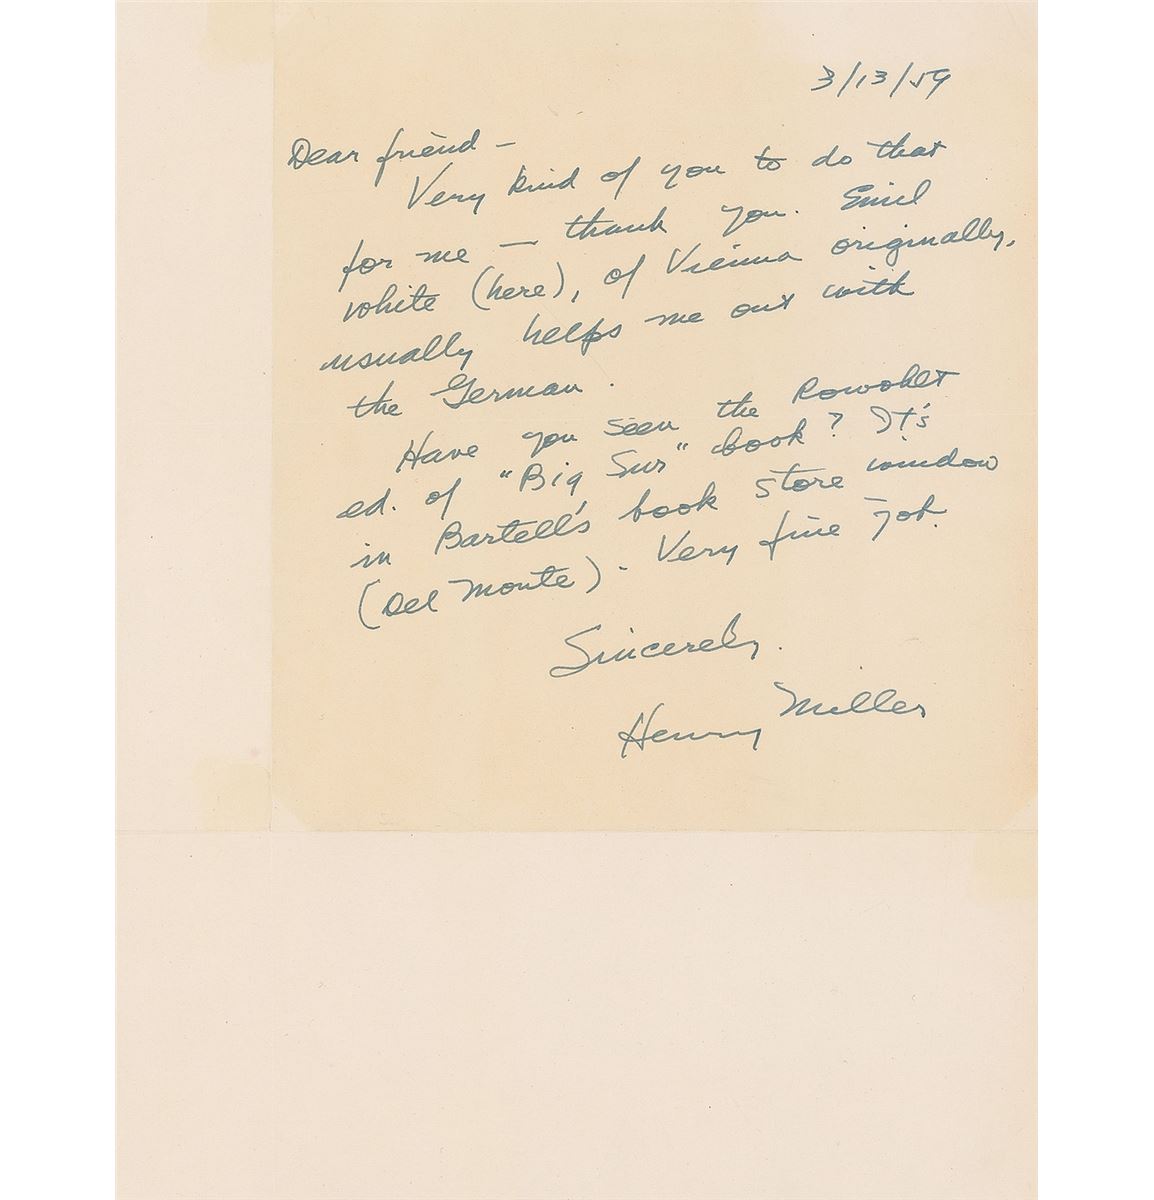 3/13/59
Dear friend –
Very kind of you to do that
for me — thank you. Emil
White (here), of Vienna originally,
usually helps me out with
the German.
Have you seen the Rowohlt
ed. of "Big Sur" book? It's
in Bartell's book store window
(Del Monte). Very fine job.
Sincerely,
Henry Miller